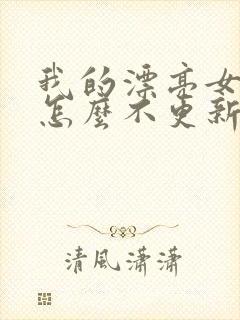 我的漂亮女
怎麼不更新
清風瀟瀟